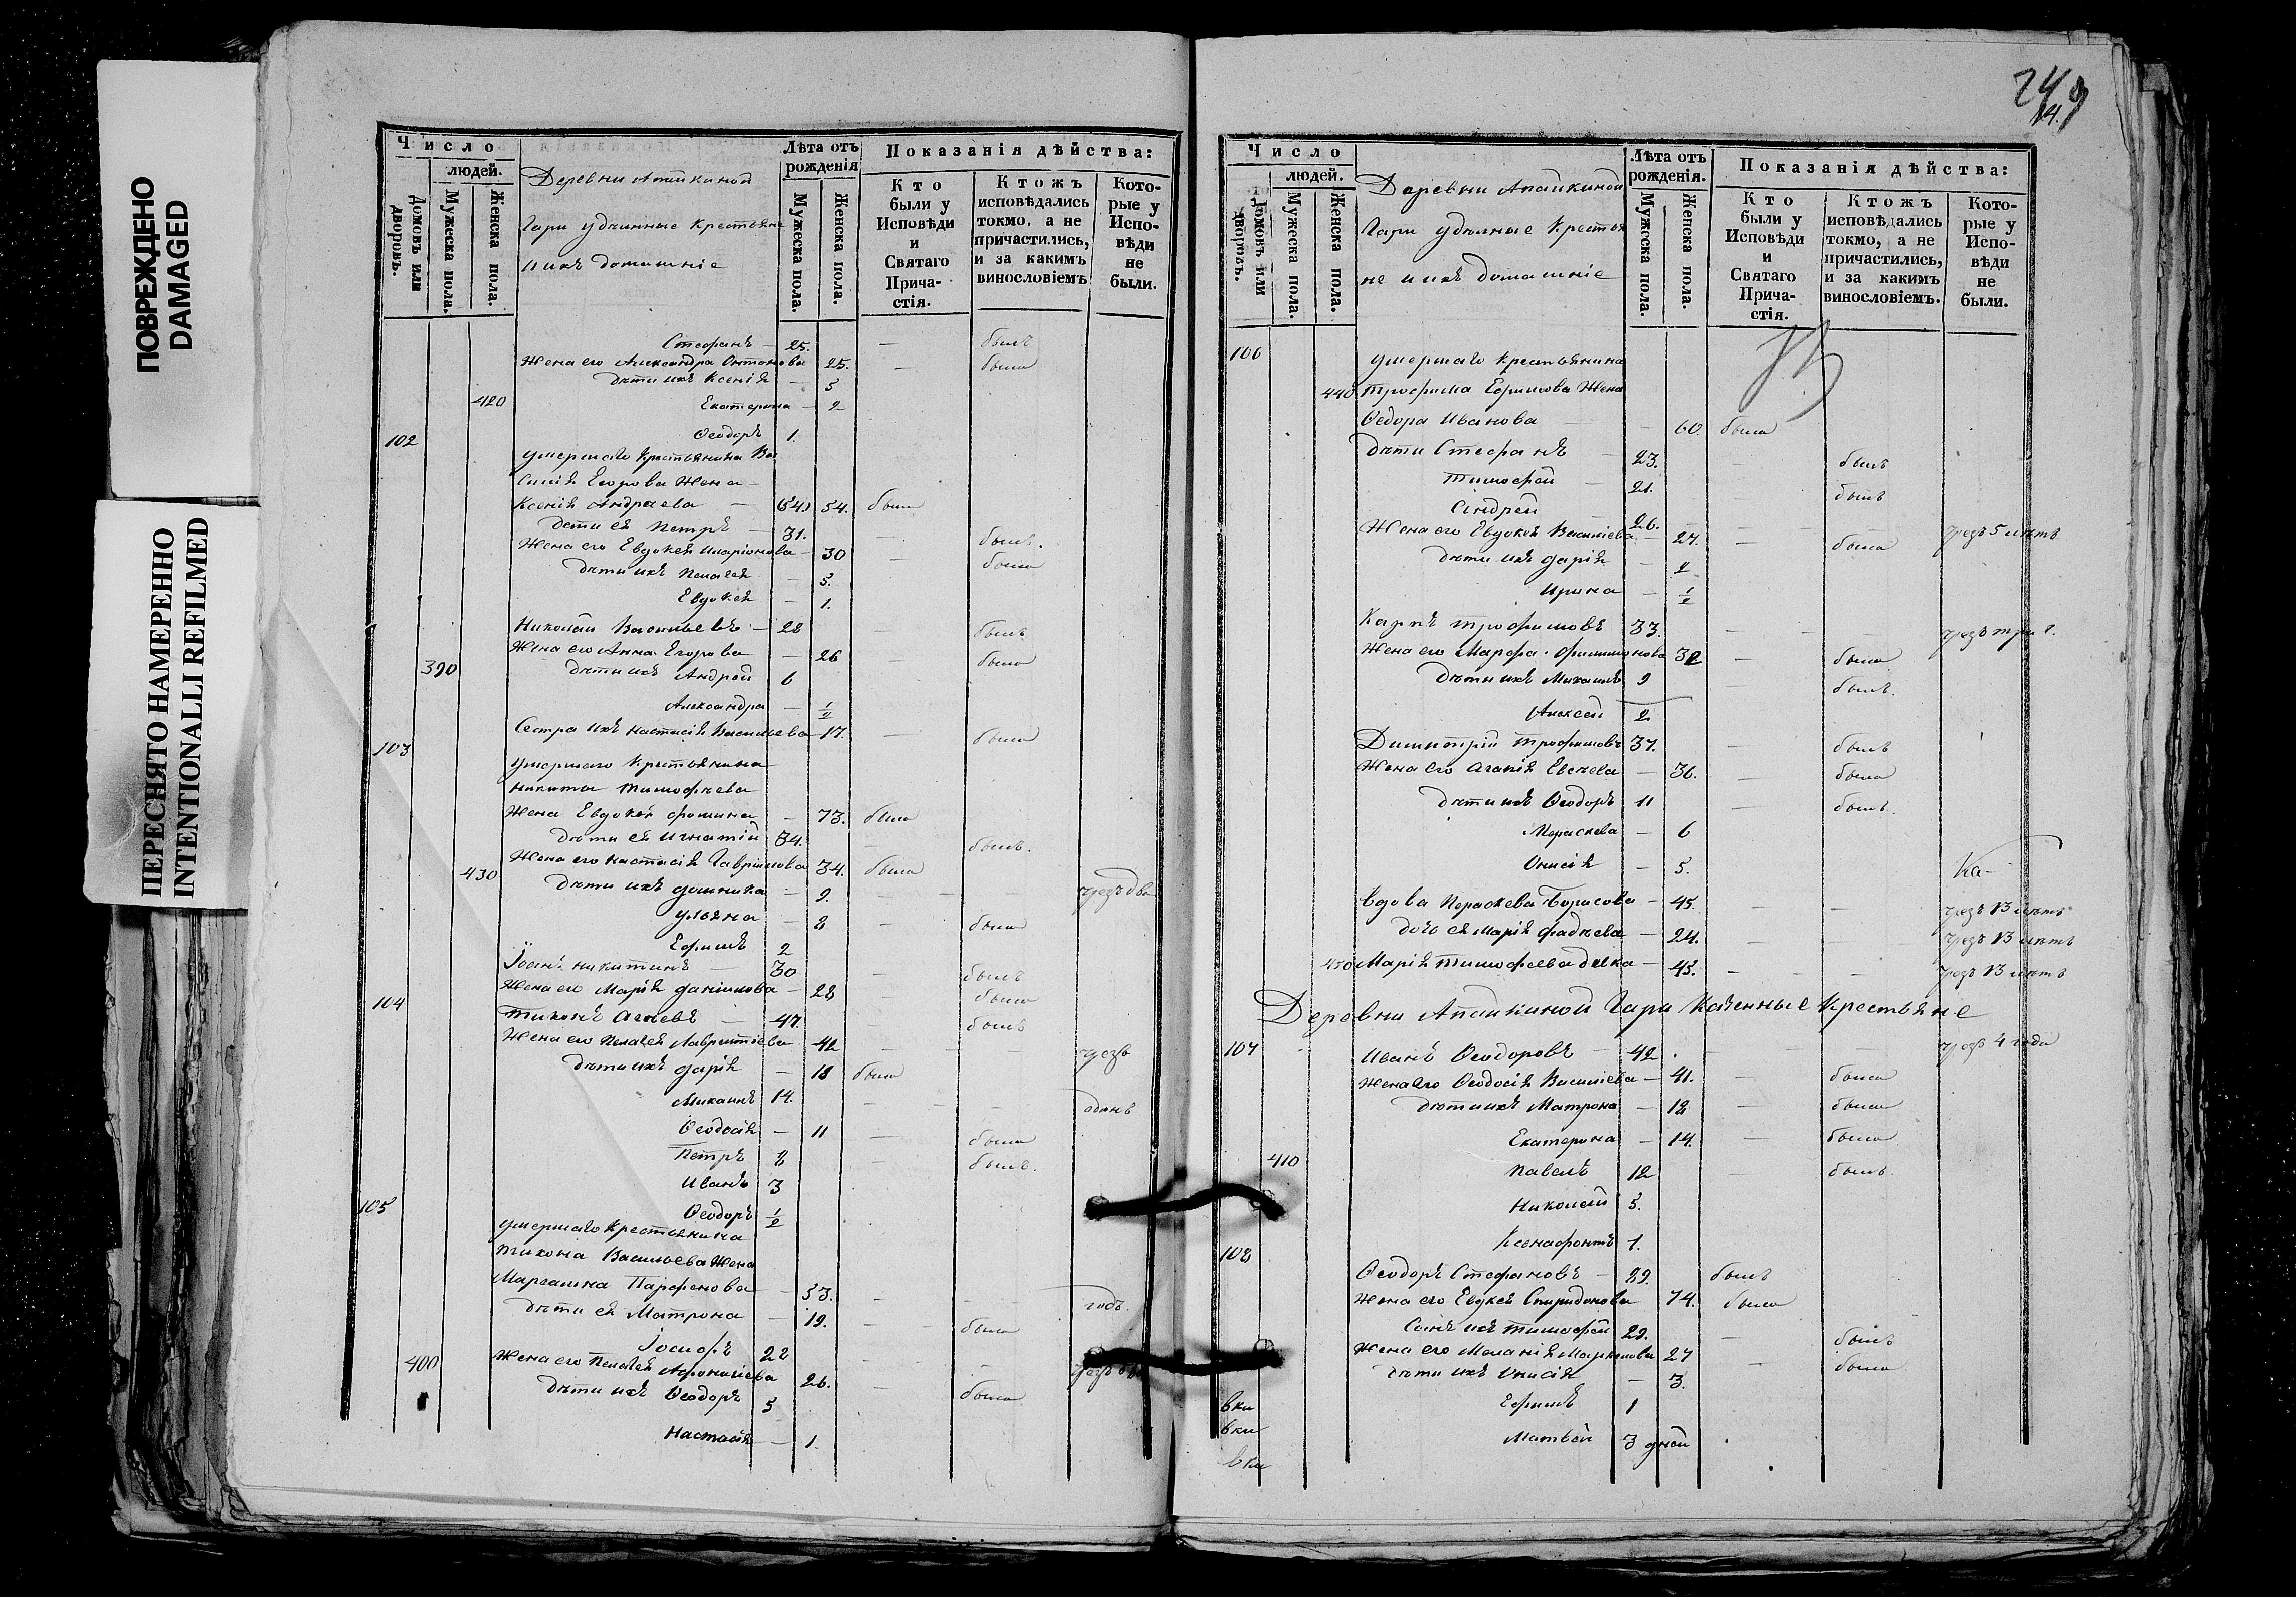 ПОВРЕЖДЕНО
DAMAGED
ПЕРЕСНЯТО НАМЕРЕННО
INTENTIONALLI REFILMED
Число
людей.
Домовъ или дворовъ.
Мужеска пола.
Женска пола.
Деревни Апайкиной
Гари удѣльные крестьяне
и ихъ домашніе
Лѣта отъ рожденія
Мужеска пола.
Женска пола.
Показанія дѣйства:
Кто были у Исповѣди и Святаго Прича-стія.
Ктожъ исповѣдались токмо, а не причастились, и за какимъ винословіемъ
Кото-рые у Испо-вѣди не были.
Стефанъ – 25. – былъ
Жена его Александра Антонова 25. – была
дѣти ихъ Ксенія – 5
420 Екатерина – 2
Ѳеодоръ 1.
102
умершаго крестьянина Ва
силія Егорова Жена –
Ксенія Андреева – 54. была
дети ея Петръ – 31. былъ.
Жена его Евдокея Иларіонова – 30 – была
дѣти ихъ Пелагея – 5.
Евдокея – 1.
Николай Васильевъ – 28 – былъ
Жена его Анна Егорова – 26 – была
390 дѣти ихъ Андрей 6
Александра – 1/2
Сестра ихъ Настасія Васильева – 17. – была
103
умершаго Крестьянина
Никиты Тимофѣева
Жена Евдокея Фомина – 73. была
дѣти ея Игнатій 34. – былъ.
Жена его Настасія Гаврилова 34. была
430 дѣти ихъ Домника – 9. – – чрезъ два
Ульяна – 8 – была
Ефимъ 2
Іоанъ Никитинъ – 30 – былъ
Жена его Марія Данилова – 28 – была
104 Тихонъ Агѣевъ – 47. – былъ
Жена его Пелагея Лаврентіева 42 – – чрезъ
дѣти ихъ Дарія – 18 была
Михаилъ 14. – – – одинъ
Ѳеодосія – 11 – была
Петръ 8 – былъ.
Иванъ 3
Ѳеодоръ 1/2
105
умершаго Крестьянина
Тихона Васильева Жена
Парфенова – 53. – – годъ.
дѣти ея Матрона – 19. – – была
Іосифъ 22 – –
400 Жена его Пелагея Афонасіева 26. – была
дѣти ихъ Ѳеодоръ 5
Настасія – 1.
249
Число
людей.
Домовъ или дворовъ.
Мужеска пола.
Женска пола.
Деревни Апайкиной
Гари удѣлные Крестья
не и ихъ домашніе
Лѣта отъ рожденія.
Мужеска пола.
Женска пола.
Показанія дѣйства:
Кто были у Исповѣди и Святаго Прича-стія.
Ктожъ исповѣдались токмо, а не причастились, и за какимъ винословіемъ.
Кото-рые у Испо-вѣди не были.
106 умершаго крестьянина
440 Трофима Ефимова Жена
Ѳедора Иванова – 60. была
дѣти Стефанъ – 23. – былъ
Тимофей – 21. – былъ
Андрей 26. – – – чрезъ 5 лѣтъ
Жена его Евдокея Василіева – 27. – была
дѣти ихъ Дарія – 2
Ирина – 1/2
Карпъ Трофимовъ 33. – – – чрезъ три г.
Жена его Марфа Филимонова 32 – была
дѣти ихъ Михаилъ 9 – былъ.
Алексей 2
Димитрій Трофимовъ 37. – былъ
Жена его Агапія Евсеева – 36. – была
дѣти ихъ Ѳеодоръ 11 – былъ.
Параскева – 6
Онисія – 5.
Вдова Параскева Борисова – 45. – – чрезъ 13 лѣтъ
дочь ея Марія Фадѣева – 24. – – чрезъ 13 лѣтъ
450 Марія Тимофеева дѣвка – 45. – – чрезъ 13 лѣтъ
Деревни Апайкиной Гари Казенные Крестьяне
107 Иванъ Ѳеодоровъ – 42 – – чрезъ 4 года
Жена его Ѳеодосія Василіева – 41. – была
дѣти ихъ Матрона – 18 – была
Екатерина – 14. – была
410 Павелъ 12 – былъ
Николай 5.
Ксенафонтъ 1.
108
Ѳеодоръ Стефановъ – былъ
Жена его Евдокея Спиридонова 74. была
Сынъ ихъ Тимофей 29. – былъ
Жена его Маланія 27 – была
дѣти ихъ Онисія – 3.
Ефимъ 1
Матвѣй 3 дней